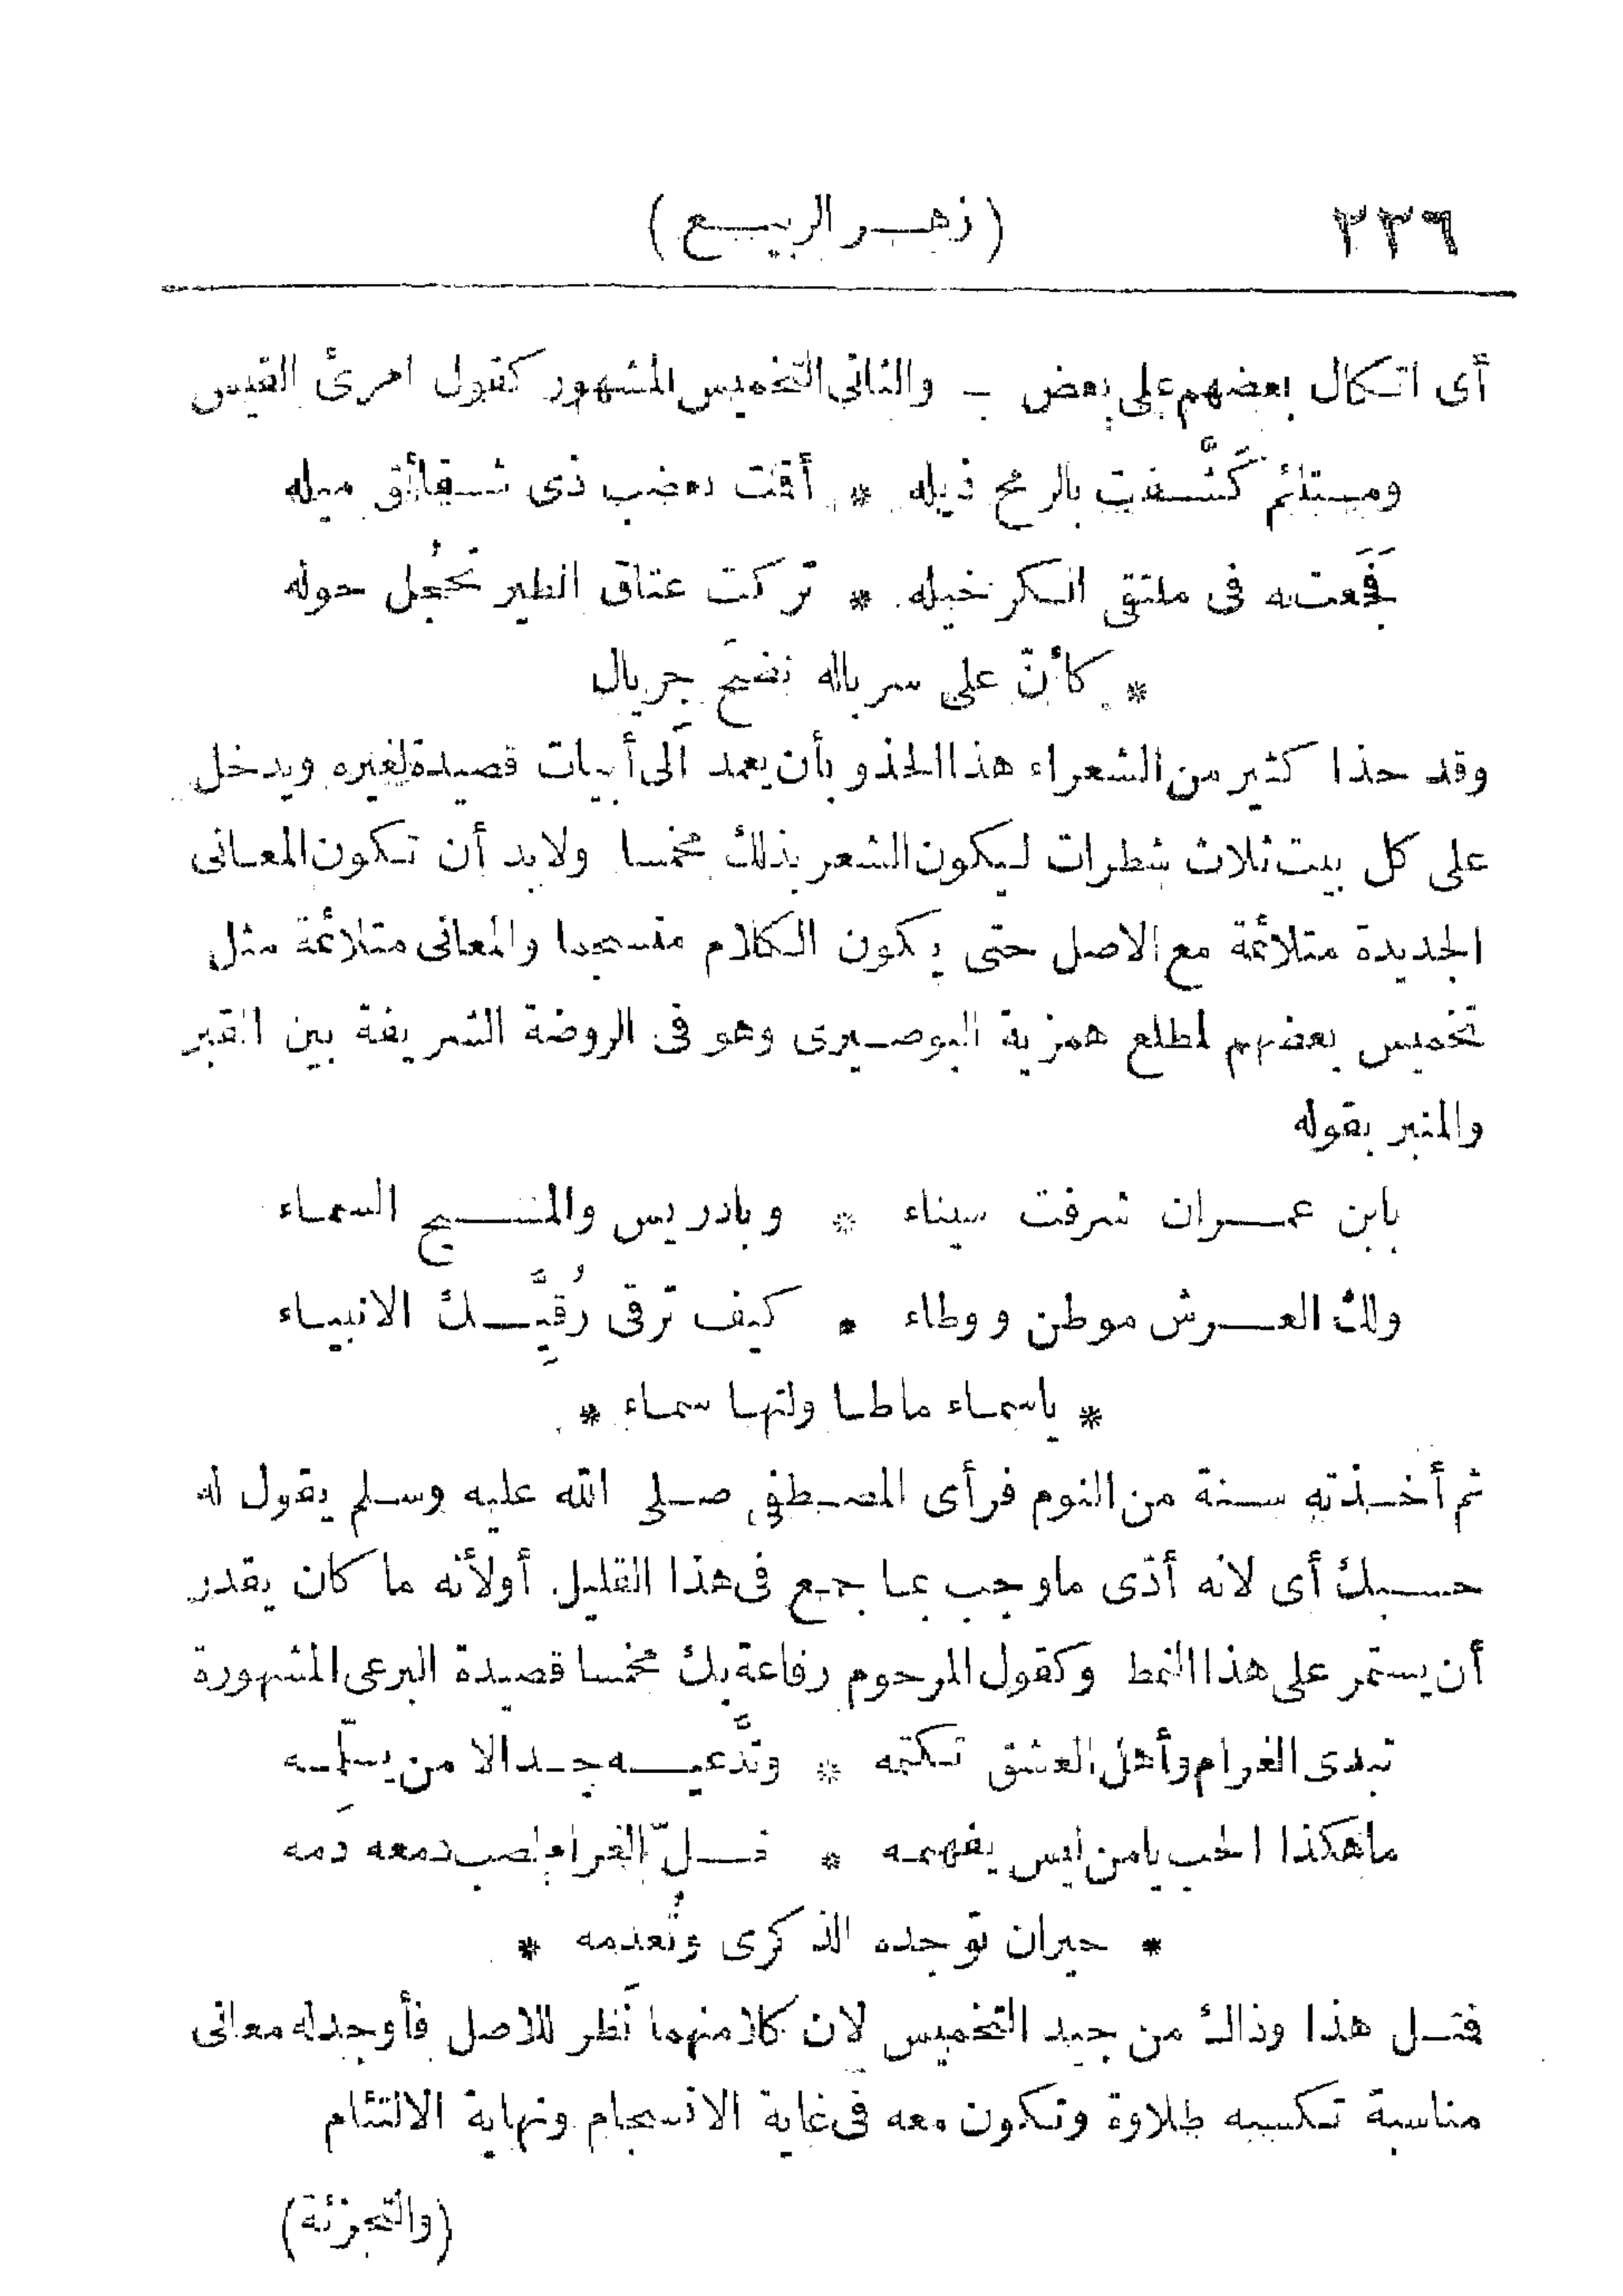 ٢٢٦ (زهر الربيع)
أى اتكال بعضهم على بعض ـ والثانى التخميس المشهور كقول امرئ القيس
ومستلئم كَشَّفت بالرمح ذيله * أقمت بعضب ذى شقائق ميله
فَجَعت به فى ملتقى الكر خيله * تركت عتاق الطير تحجُل حوله
* كأنّ على سرباله نضحَ جِريال
وقد حذا كثير من الشعراء هذا الحذو بأن يعمد الى أبيات قصيدة لغيره ويدخل
على كل بيت ثلاث شطرات ليكون الشعر بذلك مخمسا ولابد أن تكون المعانى
الجديدة متلائمة مع الاصل حتى يكون الكلام منسجما والمعانى متلائمة مثل
تخميس بعضهم لمطلع همزية البوصيرى وهو فى الروضة الشريفة بين القبر
والمنبر بقوله
بابن عمران شرفت سيناء * وبادريس والمسيح السماء
ولك العرش موطن ووطاء * كيف ترقى رُقِيَّك الانبياء
* ياسماء ماطاولتها سماء *
ثم أخذته سنة من النوم فرأى المصطفى صلى الله عليه وسلم يقول له
حسبك أى لانه أدّى ماوجب بما جمع فى هذا القليل. أولأنه ما كان يقدر
أن يستمر على هذا النمط وكقول المرحوم رفاعة بك مخمسا قصيدة البرعى المشهورة
تبدى الغرام وأهل العشق تكتمه * وتدَّعيه جدالا من يسلّمه
ماهكذا الحب يامن ليس يفهمه * خلّ الغرام لصب دمعه دَمه
* حيران توجده الذكرى وتُعدمه *
فمثل هذا وذاك من جيد التخميس لان كلا منهما نَظر للاصل فأوجد له معانى
مناسبة تكسبه طلاوة وتكون معه فى غاية الانسجام ونهاية الالتئام
(والتجزئة)